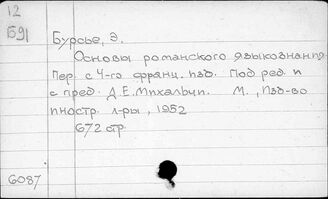 12
Б91
Бурсье, Э.
Основы романского языкознания.
Пер. с 4-го франц. изд. Под ред. и
с пред. Д.Е.Михальчи. М., Изд-во
иностр. л-ры, 1952
672 стр.
6087